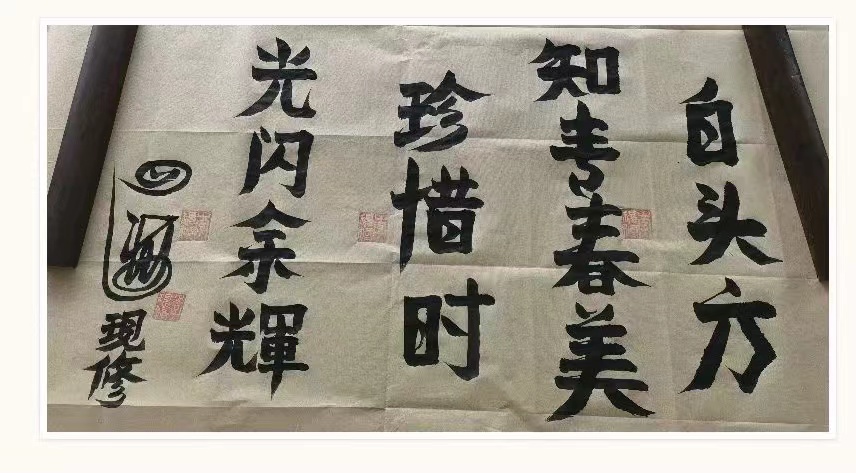 白头方
知青春美
珍惜时
光闪余輝
現修